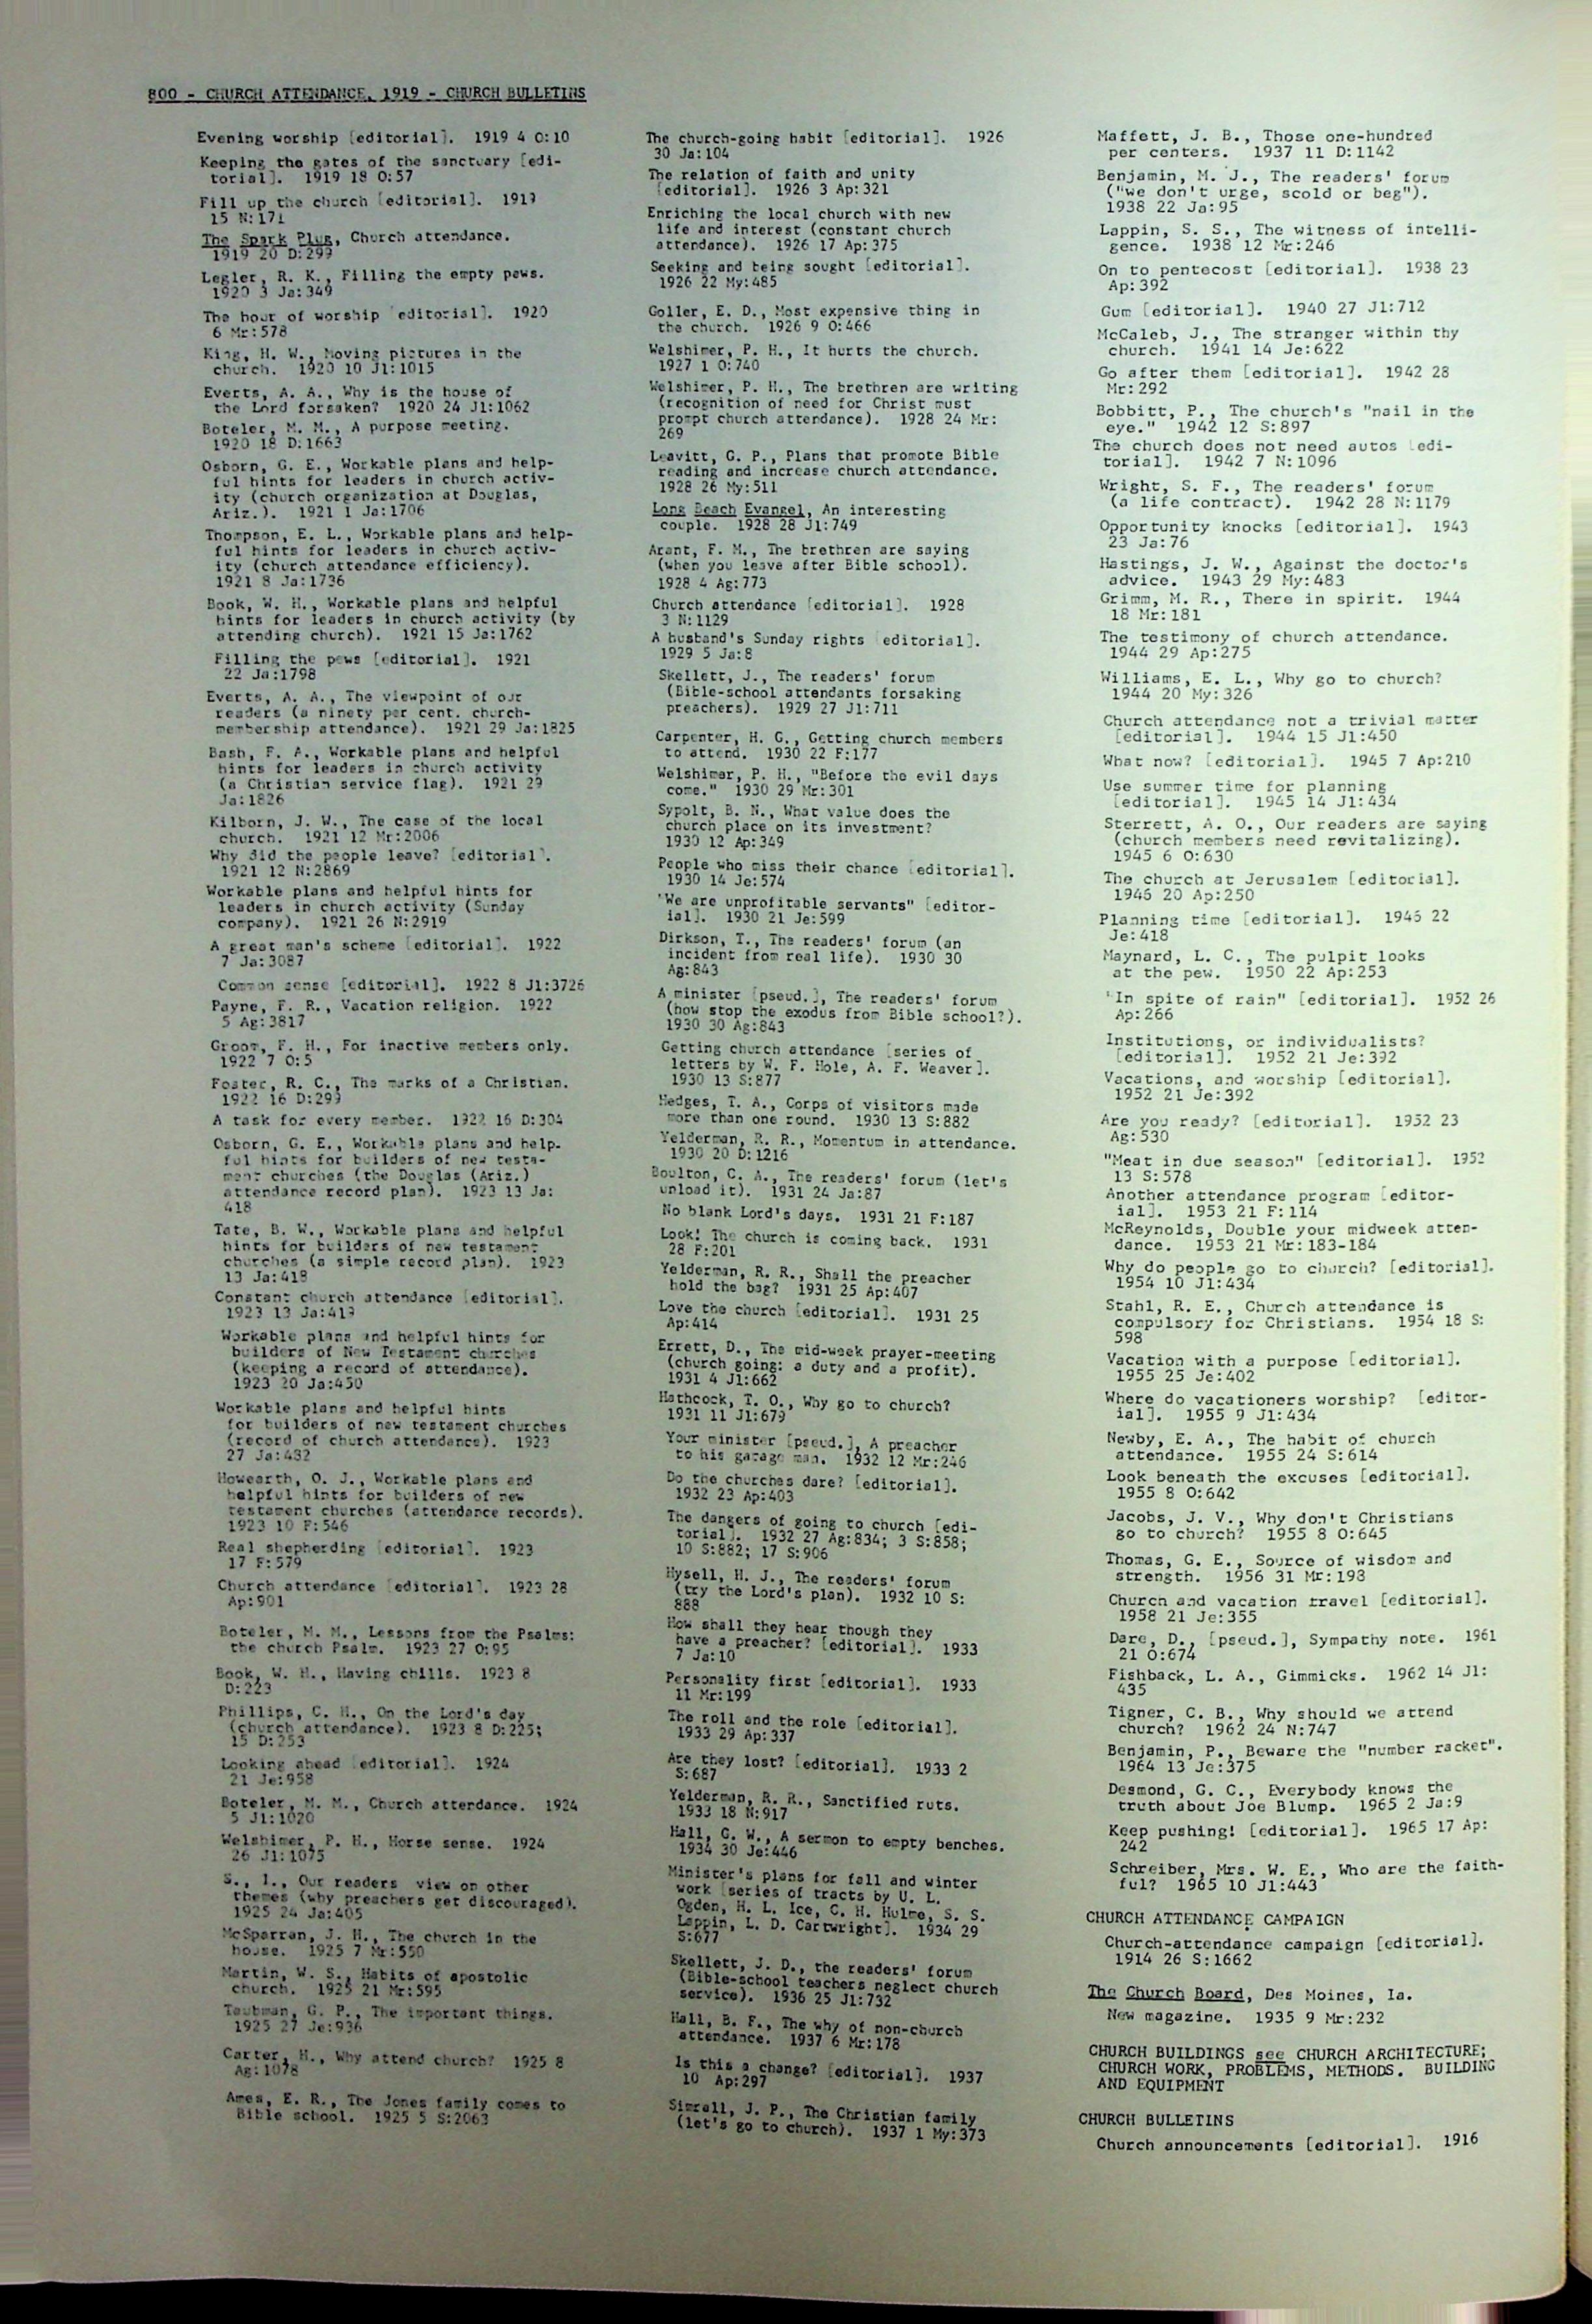 800 - CHURCH ATTENDANCE, 1919 - CHURCH BULLETINS
Evening worship [editorial]. 1919 4 O:10
Keeping the gates of the sanctuary [edi-
torial]. 1919 18 O:57
Fill up the church [editorial]. 1919
15 N:171
The Spark Plug, Church attendance.
1919 20 D:299
Legler, R. K., Filling the empty pews.
1920 3 Ja:349
The hour of worship [editorial]. 1920
6 Mr:578
King, H. W., Moving pictures in the
church. 1920 10 Jl:1015
Everts, A. A., Why is the house of
the Lord forsaken? 1920 24 Jl:1062
Boteler, M. M., A purpose meeting.
1920 18 D:1663
Osborn, G. E., Workable plans and help-
ful hints for leaders in church activ-
ity (church organization at Douglas,
Ariz.). 1921 1 Ja:1706
Thompson, E. L., Workable plans and help-
ful hints for leaders in church activ-
ity (church attendance efficiency).
1921 8 Ja:1736
Book, W. H., Workable plans and helpful
hints for leaders in church activity (by
attending church). 1921 15 Ja:1762
Filling the pews [editorial]. 1921
22 Ja:1798
Everts, A. A., The viewpoint of our
readers (a ninety per cent. church-
membership attendance). 1921 29 Ja:1825
Bash, F. A., Workable plans and helpful
hints for leaders in church activity
(a Christian service flag). 1921 29
Ja:1826
Kilborn, J. W., The case of the local
church. 1921 12 Mr:2006
Why did the people leave? [editorial].
1921 12 N:2869
Workable plans and helpful hints for
leaders in church activity (Sunday
company). 1921 26 N:2919
A great man's scheme [editorial]. 1922
7 Ja:3087
Common sense [editorial]. 1922 8 Jl:3726
Payne, F. R., Vacation religion. 1922
5 Ag:3817
Groom, F. H., For inactive members only.
1922 7 O:5
Foster, R. C., The marks of a Christian.
1922 16 D:299
A task for every member. 1922 16 D:304
Osborn, G. E., Workable plans and help-
ful hints for builders of new testa-
ment churches (the Douglas (Ariz.)
attendance record plan). 1923 13 Ja:
418
Tate, B. W., Workable plans and helpful
hints for builders of new testament
churches (a simple record plan). 1923
13 Ja:418
Constant church attendance [editorial].
1923 13 Ja:419
Workable plans and helpful hints for
builders of New Testament churches
(keeping a record of attendance).
1923 20 Ja:450
Workable plans and helpful hints
for builders of new testament churches
(record of church attendance). 1923
27 Ja:482
Howearth, O. J., Workable plans and
helpful hints for builders of new
testament churches (attendance records).
1923 10 F:546
Real shepherding [editorial]. 1923
17 F:579
Church attendance [editorial]. 1923 28
Ap:901
Boteler, M. M., Lessons from the Psalms:
the church Psalm. 1923 27 O:95
Book, W. H., Having chills. 1923 8
D:223
Phillips, C. H., On the Lord's day
(church attendance). 1923 8 D:225;
15 D:253
Looking ahead [editorial]. 1924
21 Je:958
Boteler, M. M., Church attendance. 1924
5 Jl:1020
Welshimer, P. H., Horse sense. 1924
26 Jl:1075
S., I., Our readers view on other
themes (why preachers get discouraged).
1925 24 Ja:405
McSparran, J. H., The church in the
house. 1925 7 Mr:550
Martin, W. S., Habits of apostolic
church. 1925 21 Mr:595
Taubman, G. P., The important things.
1925 27 Je:936
Carter, H., Why attend church? 1925 8
Ag:1078
Ames, E. R., The Jones family comes to
Bible school. 1925 5 S:2063
The church-going habit [editorial]. 1926
30 Ja:104
The relation of faith and unity
[editorial]. 1926 3 Ap:321
Enriching the local church with new
life and interest (constant church
attendance). 1926 17 Ap:375
Seeking and being sought [editorial].
1926 22 My:485
Goller, E. D., Most expensive thing in
the church. 1926 9 O:466
Welshimer, P. H., It hurts the church.
1927 1 O:740
Welshimer, P. H., The brethren are writing
(recognition of need for Christ must
prompt church attendance). 1928 24 Mr:
269
Leavitt, G. P., Plans that promote Bible
reading and increase church attendance.
1928 26 My:511
Long Beach Evangel, An interesting
couple. 1928 28 Jl:749
Arant, F. M., The brethren are saying
(when you leave after Bible school).
1928 4 Ag:773
Church attendance [editorial]. 1928
3 N:1129
A husband's Sunday rights [editorial].
1929 5 Ja:8
Skellett, J., The readers' forum
(Bible-school attendants forsaking
preachers). 1929 27 Jl:711
Carpenter, H. G., Getting church members
to attend. 1930 22 F:177
Welshimer, P. H., "Before the evil days
come." 1930 29 Mr:301
Sypolt, B. N., What value does the
church place on its investment?
1930 12 Ap:349
People who miss their chance [editorial].
1930 14 Je:574
"We are unprofitable servants" [editor-
ial]. 1930 21 Je:599
Dirkson, T., The readers' forum (an
incident from real life). 1930 30
Ag:843
A minister [pseud.], The readers' forum
(how stop the exodus from Bible school?).
1930 30 Ag:843
Getting church attendance [series of
letters by W. F. Hole, A. F. Weaver].
1930 13 S:877
Hedges, T. A., Corps of visitors made
more than one round. 1930 13 S:882
Yelderman, R. R., Momentum in attendance.
1930 20 D:1216
Boulton, C. A., The readers' forum (let's
unload it). 1931 24 Ja:87
No blank Lord's days. 1931 21 F:187
Look! The church is coming back. 1931
28 F:201
Yelderman, R. R., Shall the preacher
hold the bag? 1931 25 Ap:407
Love the church [editorial]. 1931 25
Ap:414
Errett, D., The mid-week prayer-meeting
(church going: a duty and a profit).
1931 4 Jl:662
Hathcock, T. O., Why go to church?
1931 11 Jl:679
Your minister [pseud.], A preacher
to his garage man. 1932 12 Mr:246
Do the churches dare? [editorial].
1932 23 Ap:403
The dangers of going to church [edi-
torial]. 1932 27 Ag:834; 3 S:858;
10 S:882; 17 S:906
Hysell, H. J., The readers' forum
(try the Lord's plan). 1932 10 S:
888
How shall they hear though they
have a preacher? [editorial]. 1933
7 Ja:10
Personality first [editorial]. 1933
11 Mr:199
The roll and the role [editorial].
1933 29 Ap:337
Are they lost? [editorial]. 1933 2
S:687
Yelderman, R. R., Sanctified ruts.
1933 18 N:917
Hall, G. W., A sermon to empty benches.
1934 30 Je:446
Minister's plans for fall and winter
work [series of tracts by U. L.
Ogden, H. L. Ice, C. H. Hulme, S. S.
Lappin, L. D. Cartwright]. 1934 29
S:677
Skellett, J. D., the readers' forum
(Bible-school teachers neglect church
service). 1936 25 Jl:732
Hall, B. F., The why of non-church
attendance. 1937 6 Mr:178
Is this a change? [editorial]. 1937
10 Ap:297
Simrall, J. P., The Christian family
(let's go to church). 1937 1 My:373
Maffett, J. B., Those one-hundred
per centers. 1937 11 D:1142
Benjamin, M. J., The readers' forum
("we don't urge, scold or beg").
1938 22 Ja:95
Lappin, S. S., The witness of intelli-
gence. 1938 12 Mr:246
On to pentecost [editorial]. 1938 23
Ap:392
Gum [editorial]. 1940 27 Jl:712
McCaleb, J., The stranger within thy
church. 1941 14 Je:622
Go after them [editorial]. 1942 28
Mr:292
Bobbitt, P., The church's "nail in the
eye." 1942 12 S:897
The church does not need autos [edi-
torial]. 1942 7 N:1096
Wright, S. F., The readers' forum
(a life contract). 1942 28 N:1179
Opportunity knocks [editorial]. 1943
23 Ja:76
Hastings, J. W., Against the doctor's
advice. 1943 29 My:483
Grimm, M. R., There in spirit. 1944
18 Mr:181
The testimony of church attendance.
1944 29 Ap:275
Williams, E. L., Why go to church?
1944 20 My:326
Church attendance not a trivial matter
[editorial]. 1944 15 Jl:450
What now? [editorial]. 1945 7 Ap:210
Use summer time for planning
[editorial]. 1945 14 Jl:434
Sterrett, A. O., Our readers are saying
(church members need revitalizing).
1945 6 O:630
The church at Jerusalem [editorial].
1946 20 Ap:250
Planning time [editorial]. 1946 22
Je:418
Maynard, L. C., The pulpit looks
at the pew. 1950 22 Ap:253
"In spite of rain" [editorial]. 1952 26
Ap:266
Institutions, or individualists?
[editorial]. 1952 21 Je:392
Vacations, and worship [editorial].
1952 21 Je:392
Are you ready? [editorial]. 1952 23
Ag:530
"Meat in due season" [editorial]. 1952
13 S:578
Another attendance program [editor-
ial]. 1953 21 F:114
McReynolds, Double your midweek atten-
dance. 1953 21 Mr:183-184
Why do people go to church? [editorial].
1954 10 Jl:434
Stahl, R. E., Church attendance is
compulsory for Christians. 1954 18 S:
598
Vacation with a purpose [editorial].
1955 25 Je:402
Where do vacationers worship? [editor-
ial]. 1955 9 Jl:434
Newby, E. A., The habit of church
attendance. 1955 24 S:614
Look beneath the excuses [editorial].
1955 8 O:642
Jacobs, J. V., Why don't Christians
go to church? 1955 8 O:645
Thomas, G. E., Source of wisdom and
strength. 1956 31 Mr:193
Church and vacation travel [editorial].
1958 21 Je:355
Dare, D., [pseud.], Sympathy note. 1961
21 O:674
Fishback, L. A., Gimmicks. 1962 14 Jl:
435
Tigner, C. B., Why should we attend
church? 1962 24 N:747
Benjamin, P., Beware the "number racket".
1964 13 Je:375
Desmond, G. C., Everybody knows the
truth about Joe Blump. 1965 2 Ja:9
Keep pushing! [editorial]. 1965 17 Ap:
242
Schreiber, Mrs. W. E., Who are the faith-
ful? 1965 10 Jl:443
CHURCH ATTENDANCE CAMPAIGN
Church-attendance campaign [editorial].
1914 26 S:1662
The Church Board, Des Moines, Ia.
New magazine. 1935 9 Mr:232
CHURCH BUILDINGS see CHURCH ARCHITECTURE;
CHURCH WORK, PROBLEMS, METHODS. BUILDING
AND EQUIPMENT
CHURCH BULLETINS
Church announcements [editorial]. 1916